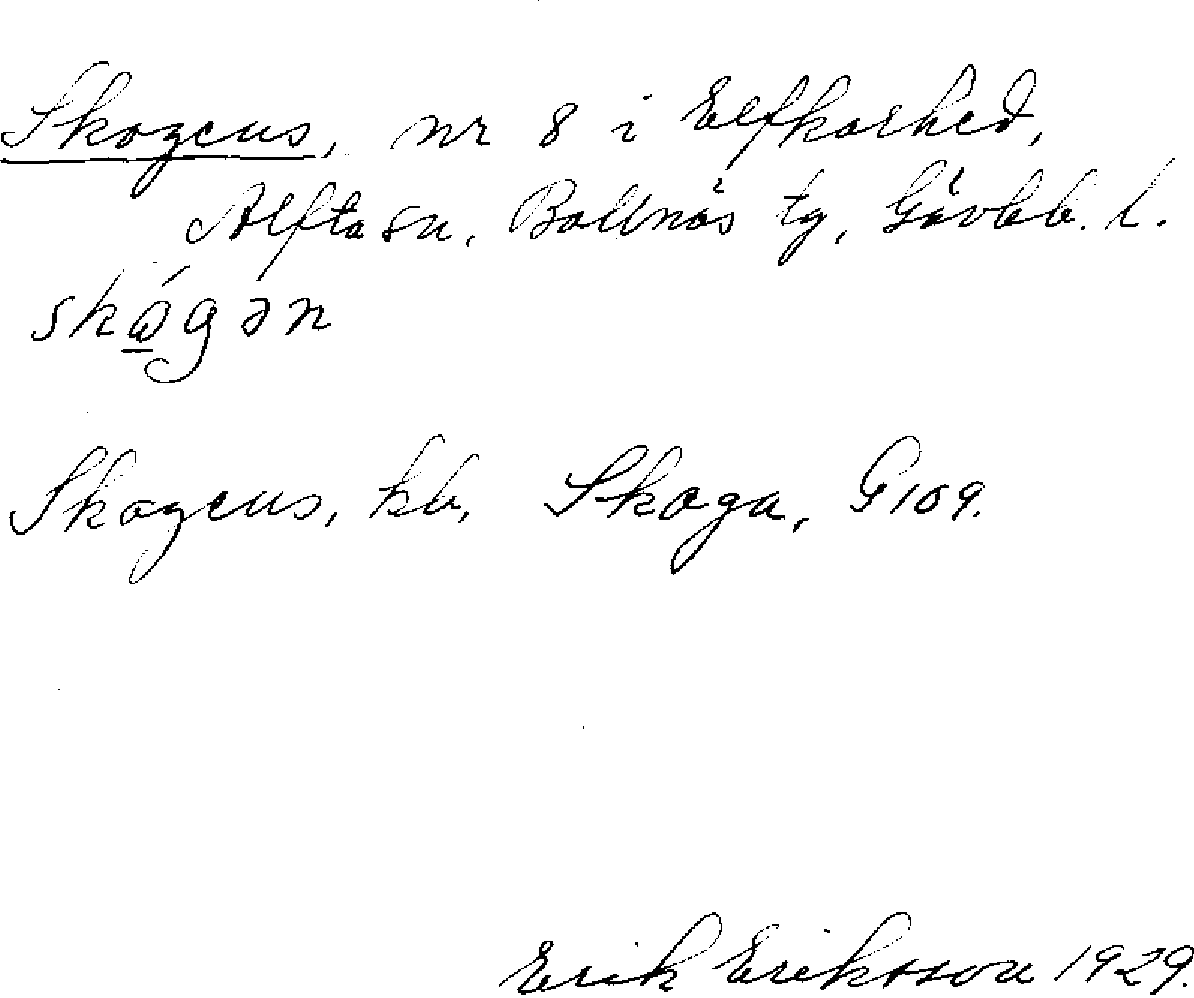 Skogens, nr 8 i Elfkarhed,
Alfta sn, Bollnäs tg, Gävleb. l.
skógən
Skogens, kb, Skoga, G 109.
Erik Eriksson 1929.